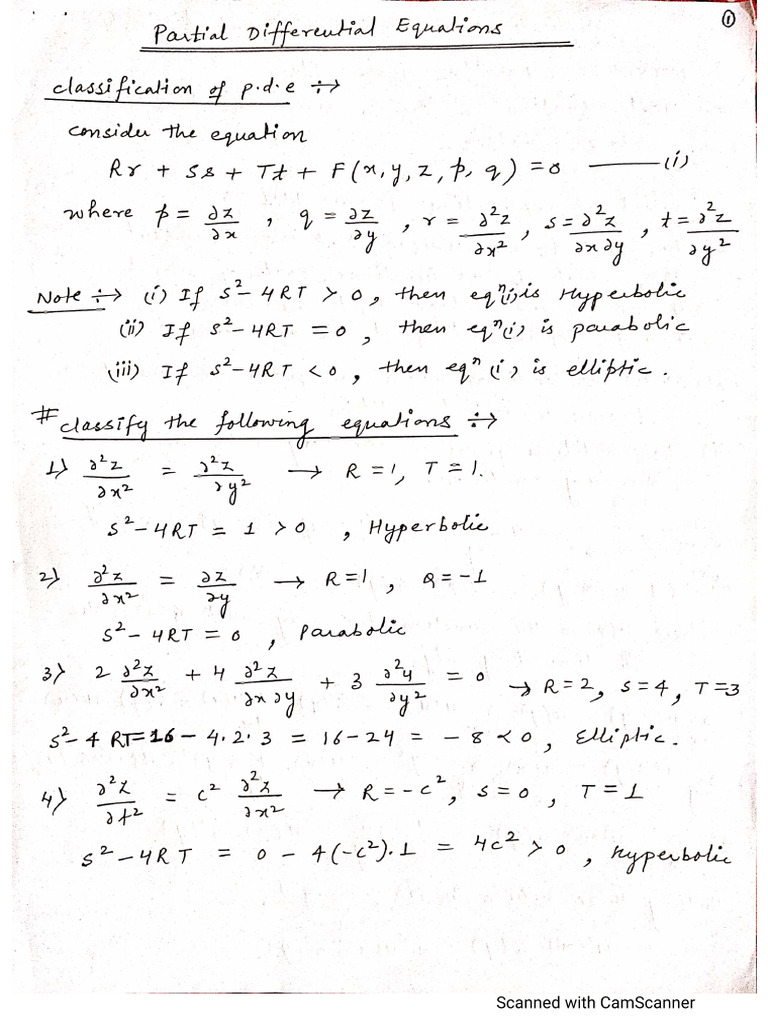 ①
Partial Differential Equations
classification of p.d.e ÷→
consider the equation
Rr + Ss + Tt + F(x, y, z, p, q) = 0 ——— (i)
where p = ∂z/∂x , q = ∂z/∂y , r = ∂²z/∂x² , s = ∂²z/∂x∂y , t = ∂²z/∂y²
Note ÷→ (i) If S² - 4RT > 0, then eqⁿ(i) is Hyperbolic
(ii) If S² - 4RT = 0, then eqⁿ(i) is parabolic
(iii) If S² - 4RT < 0, then eqⁿ(i) is elliptic.
# classify the following equations ÷→
1) ∂²z/∂x² = ∂²z/∂y² → R = 1, T = 1.
S² - 4RT = 1 > 0 , Hyperbolic
2) ∂²z/∂x² = ∂z/∂y → R = 1 , Q = -1
S² - 4RT = 0 , Parabolic
3) 2 ∂²z/∂x² + 4 ∂²z/∂x∂y + 3 ∂²y/∂y² = 0 → R = 2, S = 4, T = 3
S² - 4 RT = 16 - 4·2·3 = 16 - 24 = -8 < 0, Elliptic.
4) ∂²z/∂t² = c² ∂²z/∂x² → R = -c², S = 0 , T = 1
S² - 4RT = 0 - 4(-c²).1 = 4c² > 0 , Hyperbolic
Scanned with CamScanner